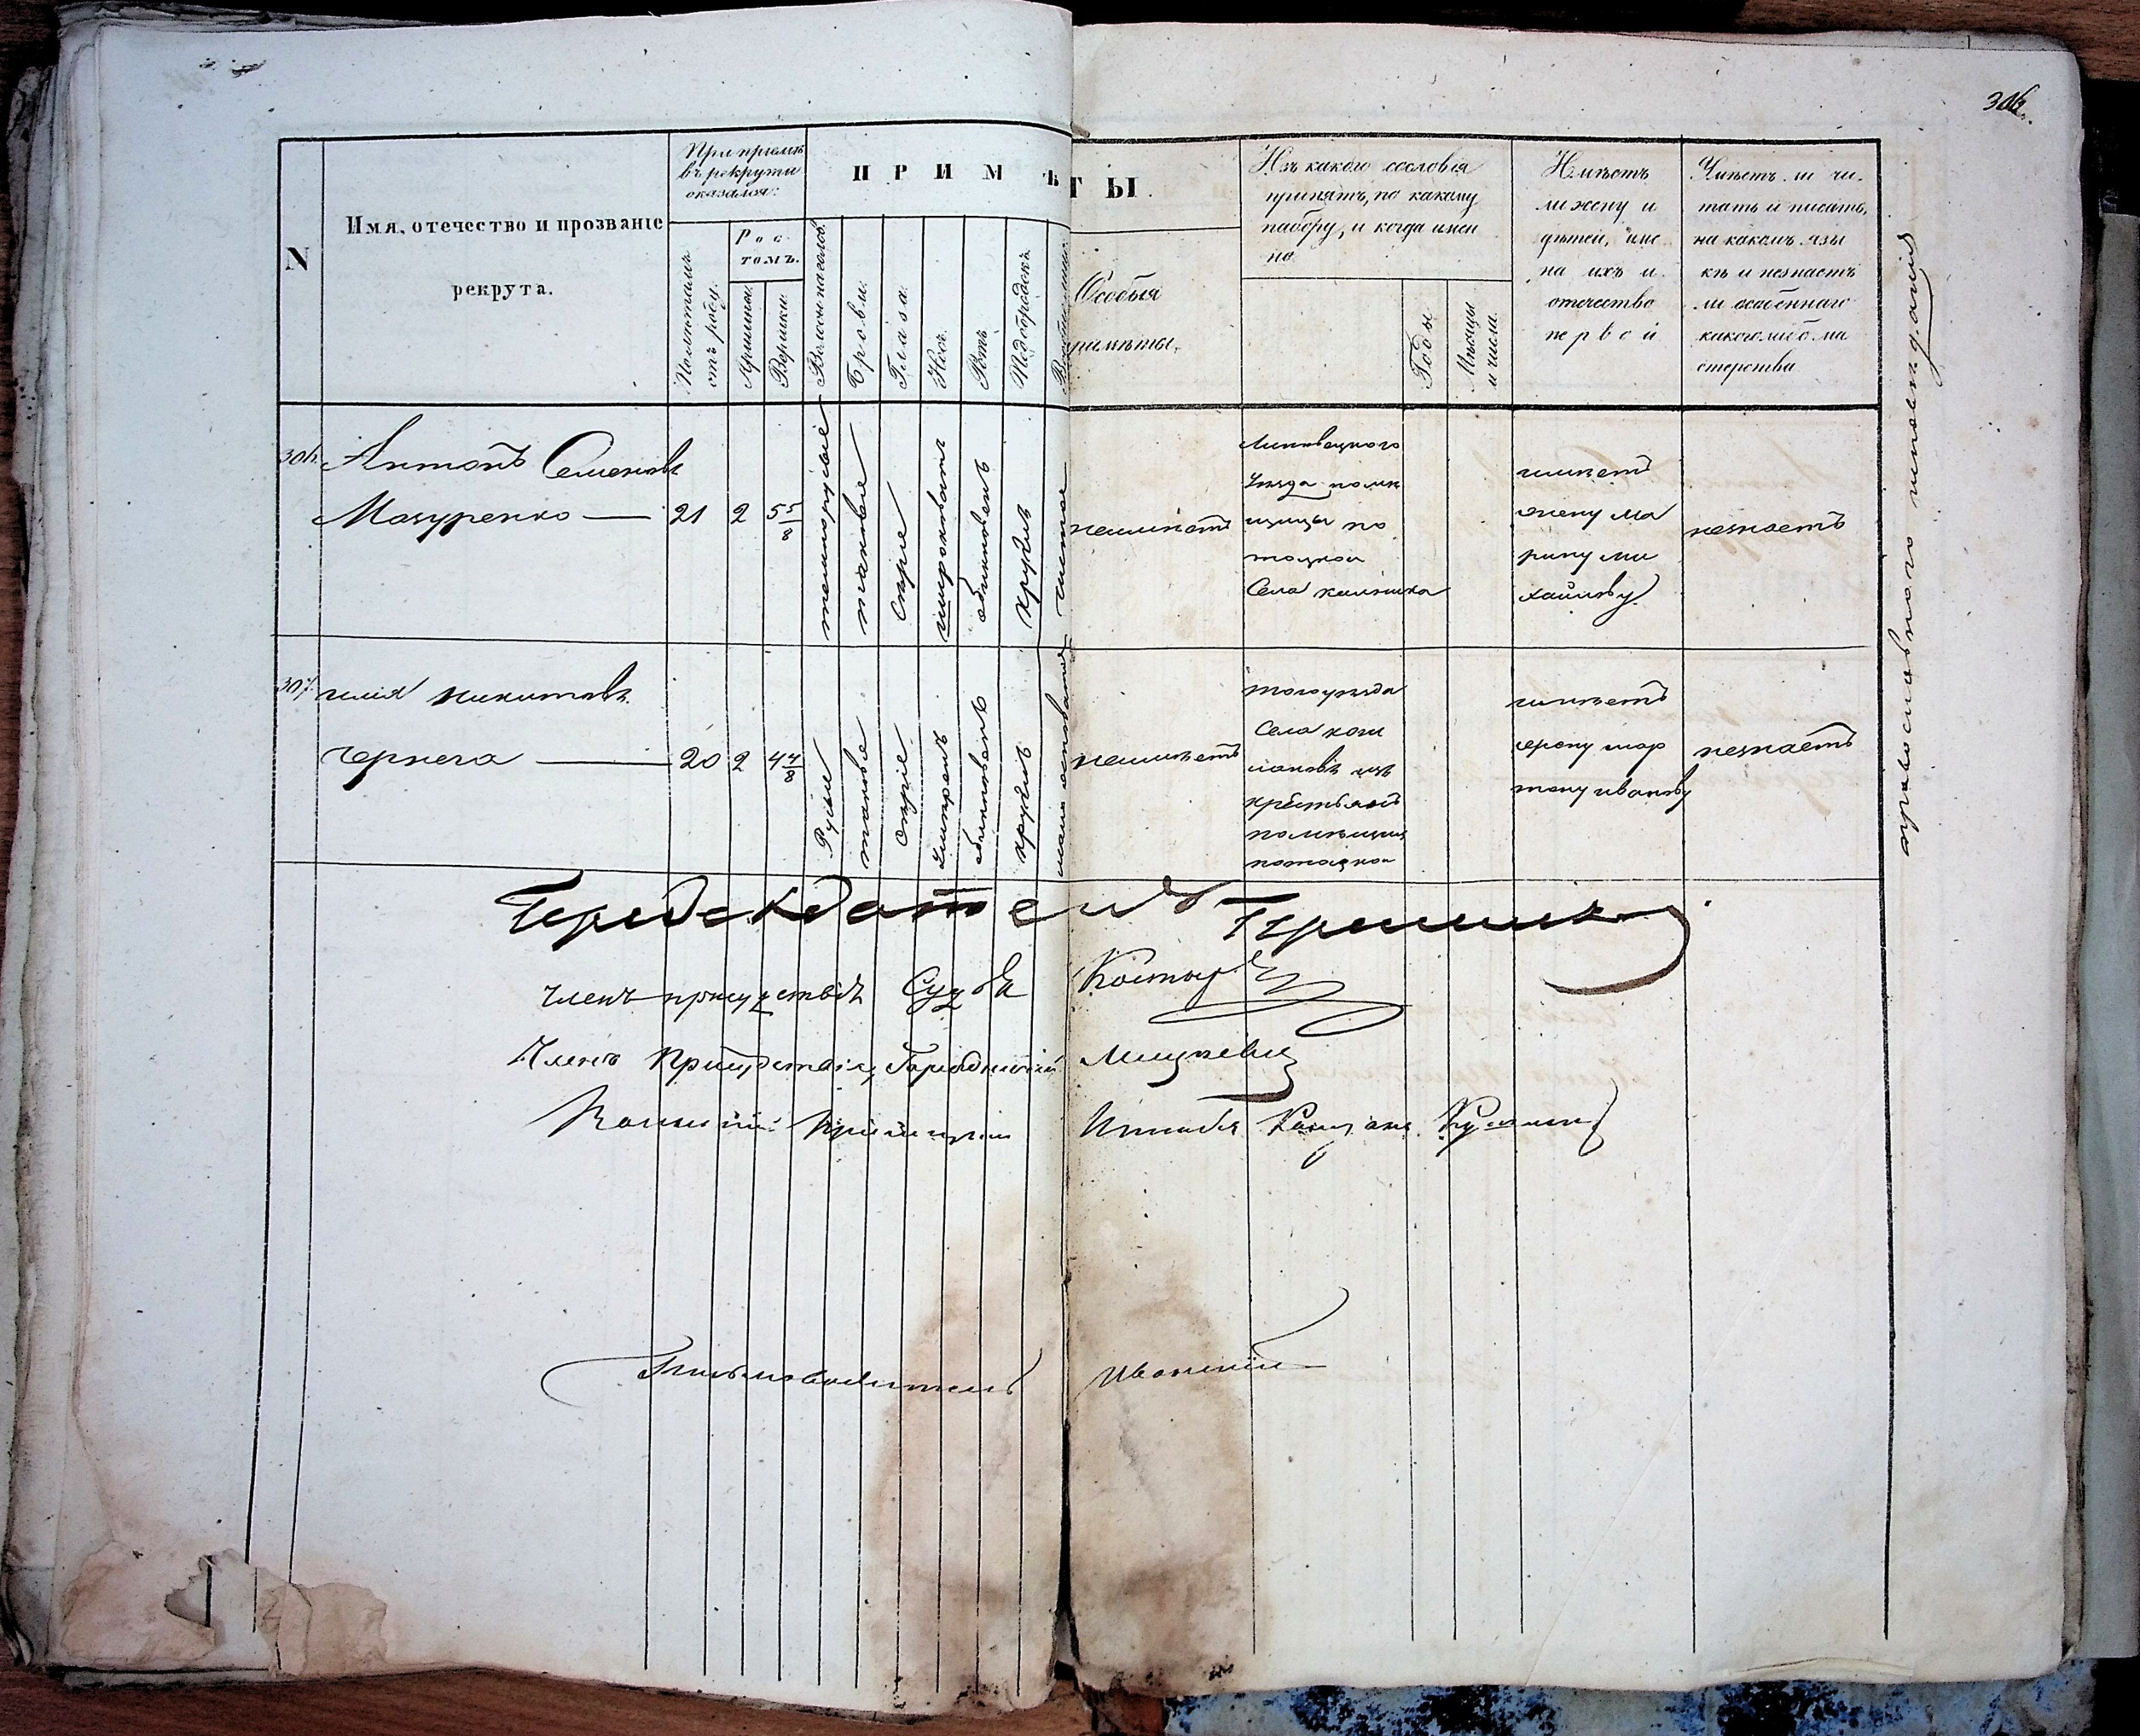 306.
N
Имя, отечество и прозваніе
рекрута.
При пріемѣ
въ рекруты
оказался:
Ростомъ.
Аршины.
Вершки.
ПРИМѢТЫ.
Волосы на голов.
Брови.
Глаза.
Носъ.
Ротъ.
Подбородокъ.
Особыя
примѣты.
Изъ какого сословія
принятъ, по какому
набору, и когда имен
но
Годы
Мѣсяцы
и числа.
Имѣетъ
ли жену и
дѣтей, име
на ихъ и
отечество
первой
Умѣетъ ли чи-
тать и писать,
на какомъ язы
кѣ и незнаетъ
ли особеннаго
какого либо ма
стерства
306. Антонъ Семеновъ
Мазуренко — 21 2 5 5/8
темнорусые
таковые
Сѣрые
широковатъ
обыкновенъ
Круглъ
чистое
неимѣетъ
Липовецкого
Уѣзда помѣ
щицы По
тоцкой
Села
имѣетъ
жену Ма
рину Ми
хайлову
незнаетъ
307. илія Никитовъ
Чернега — 20 2 4 4/8
Русые
таковые
Сѣрые
Умѣренъ
обыкновенъ
круглъ
неимѣетъ
того уѣзда
Села
изъ
крестьянъ
помѣщицы
потоцкой
имѣетъ
жену мар
тону иванову
незнаетъ
православного исповѣданія
Предсѣдатель
Членъ присудствія Судья
Членъ Присудствія, Городничій Мицкевич
Военный Пріемщикъ
Письмоводитель